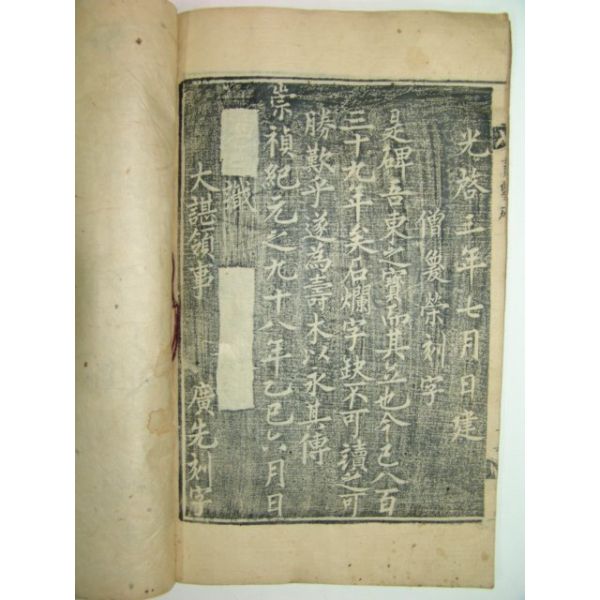 光啓三年七月日建
僧奐榮刻字
是碑吾東之寶而其立也今已八百
三十九年矣石爛字缺不可讀之可
勝歎乎遂為壽木以永其傳
崇禎紀元之九十八年乙巳六月日
識
大諶領事 廣先刻字